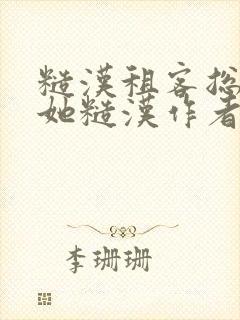 糙漢租客總
她糙漢作者
李珊珊